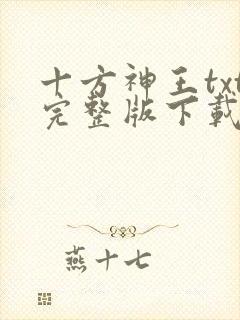 十方神王txt
完整版下载
燕十七